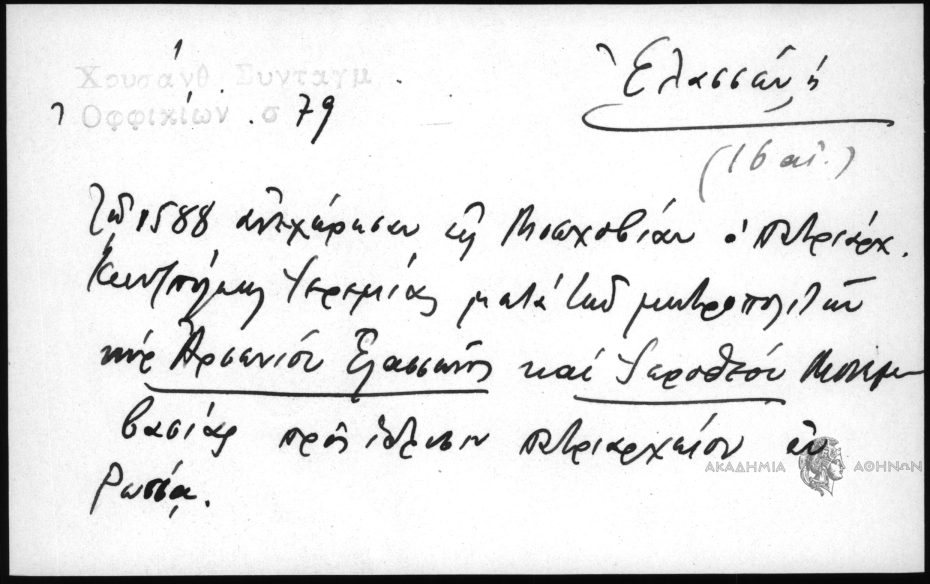 Χρυσάνθ Συνταγμ
Ὀφφικίων σ . 79
Ἐλασσών ἡ
(16 αἰ.)
Τῷ 1588 ἀνεχώρησαν εἰς Μοσχοβίαν ὁ πατριάρχ.
Κωνστ/πόλεως Ἱερεμίας μετὰ τῶν μητροπολιτῶν
κὺρ Ἀρσενίου Ἐλασσῶνος καὶ Ἱεροθέου Μονεμ
βασίας πρὸς ἵδρυσιν πατριαρχείου ἐν
Ρωσσίᾳ.
ΑΚΑΔΗΜΙΑ ΑΘΗΝΩΝ